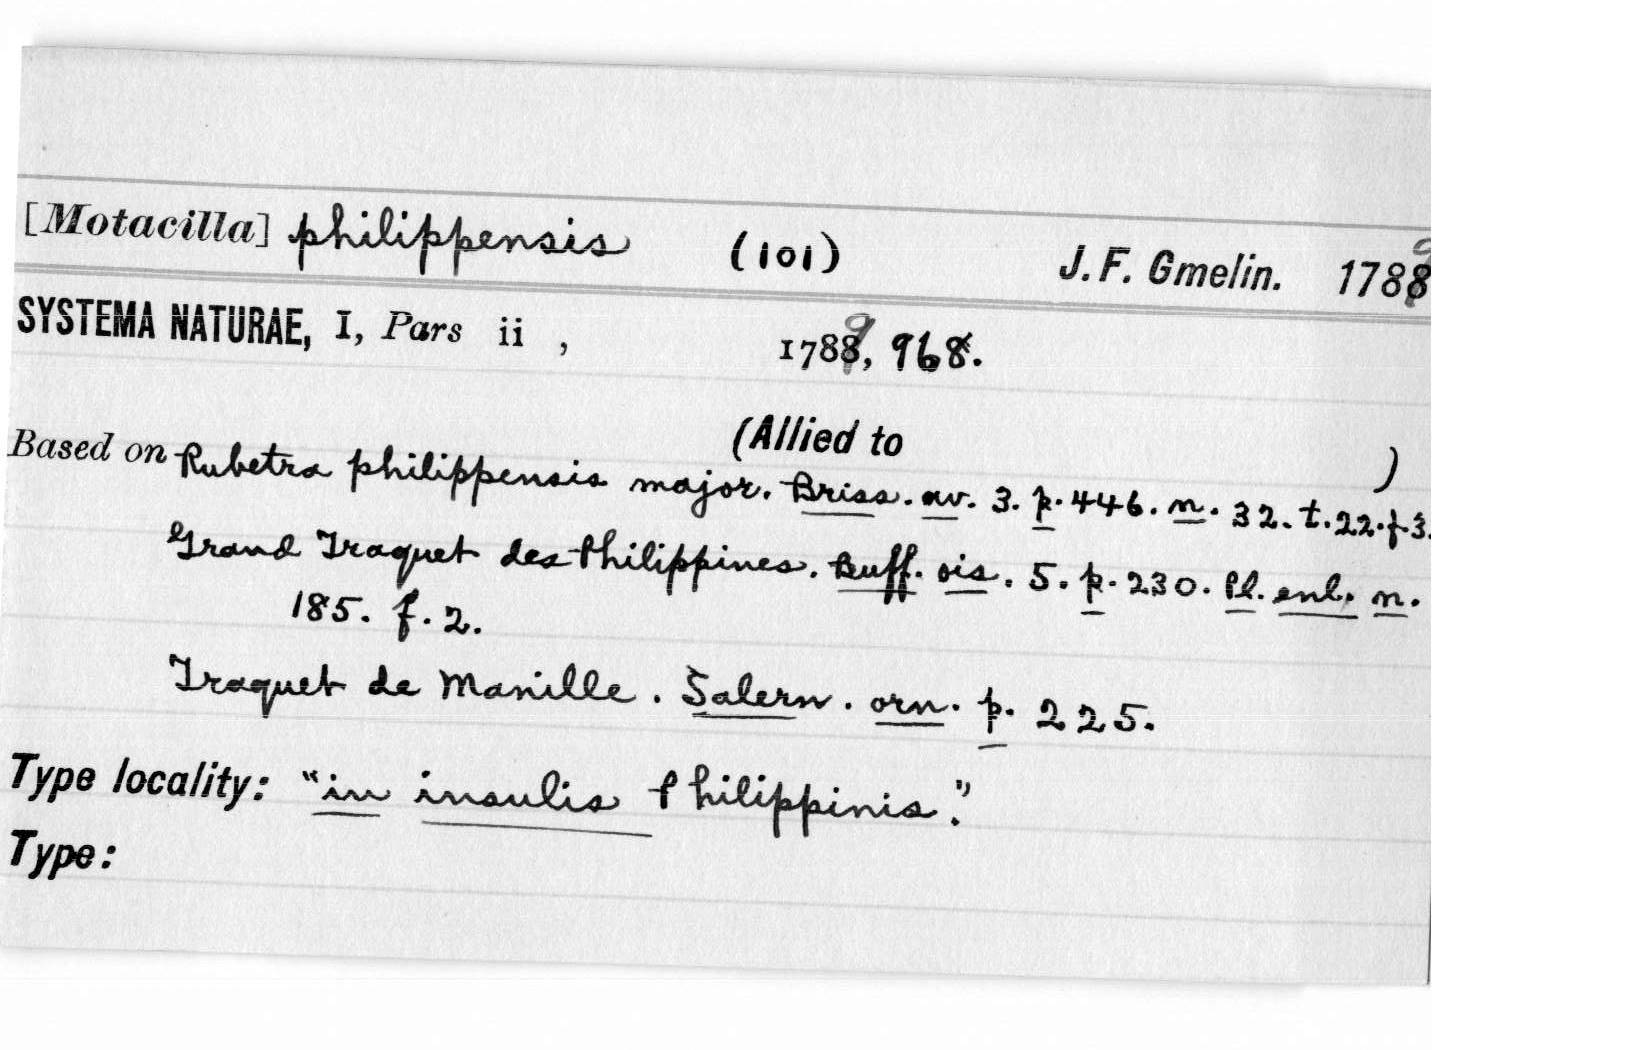 [Motacilla] philippensis (101) J. F. Gmelin. 1789
SYSTEMA NATURAE, I, Pars ii , 1789, 968.
(Allied to )
Based on Rubetra philippensis major. Briss. av. 3. p. 446. n. 32. t. 22. f. 3.
Grand Traquet des Philippines. Buff. ois. 5. p. 230. Pl. enl. n.
185. f. 2.
Traquet de Manille. Salern. orn. p. 225.
Type locality: "in insulis Philippinis."
Type: